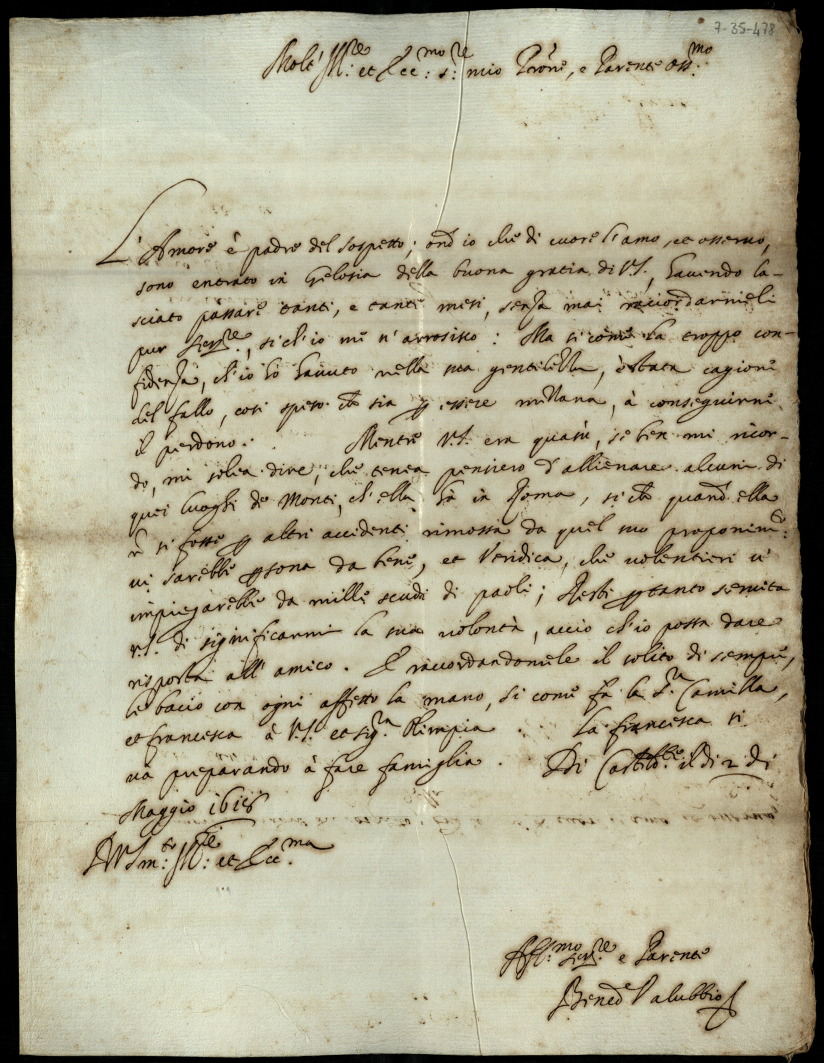 7-35-478
Molt' Ill.re et Ecc.mo s.re mio P'rone, e Parente oss.mo
L'Amore è padre del sospetto; ond'io che di cuore l'amo, et osseruo,
sono entrato in Gelosia della buona gratia di V.S., hauendo la-
sciato passare tanti, e tanti mesi, senza mai raccordarmeli
pur Ser.re, si ch'io me n'arrosisco: Ma si come la troppo con-
fidenza, ch'io hò hauuto nella sua gentilezza, è stata cagione
del fallo, così spero che sia p essere mezzana, à conseguirmi
il perdono. Mentre V.S. era quassù, se ben mi ricor-
do, mi solea dire, che tenea pensiero d'allienare alcuni di
quei luoghi de Monti, ch'ella hà in Roma, si che quand'ella
n si fosse p altri accidenti rimossa da quel suo proponim.to:
ui sarebbe psona da bene, et Veridica, che uolentieri u'
impiegarebbe da mille scudi di paoli; Resti ptanto seruita
V.S. di significarmi la sua uolontà, acciò ch'io possa dare
risposta all'amico. E raccordandomele il solito di sempre,
le bacio con ogni affetto la mano, si come fà la S.ra Camilla,
et francesca à V.S. et sig.ra Olimpia. La francesca si
và preparando à fare famiglia. Di il di 2 di
Maggio 1616
D V.S. m.to Ill.re et Ecc.ma
Aff.mo Ser.re e Parente
Bened.o Valubbio